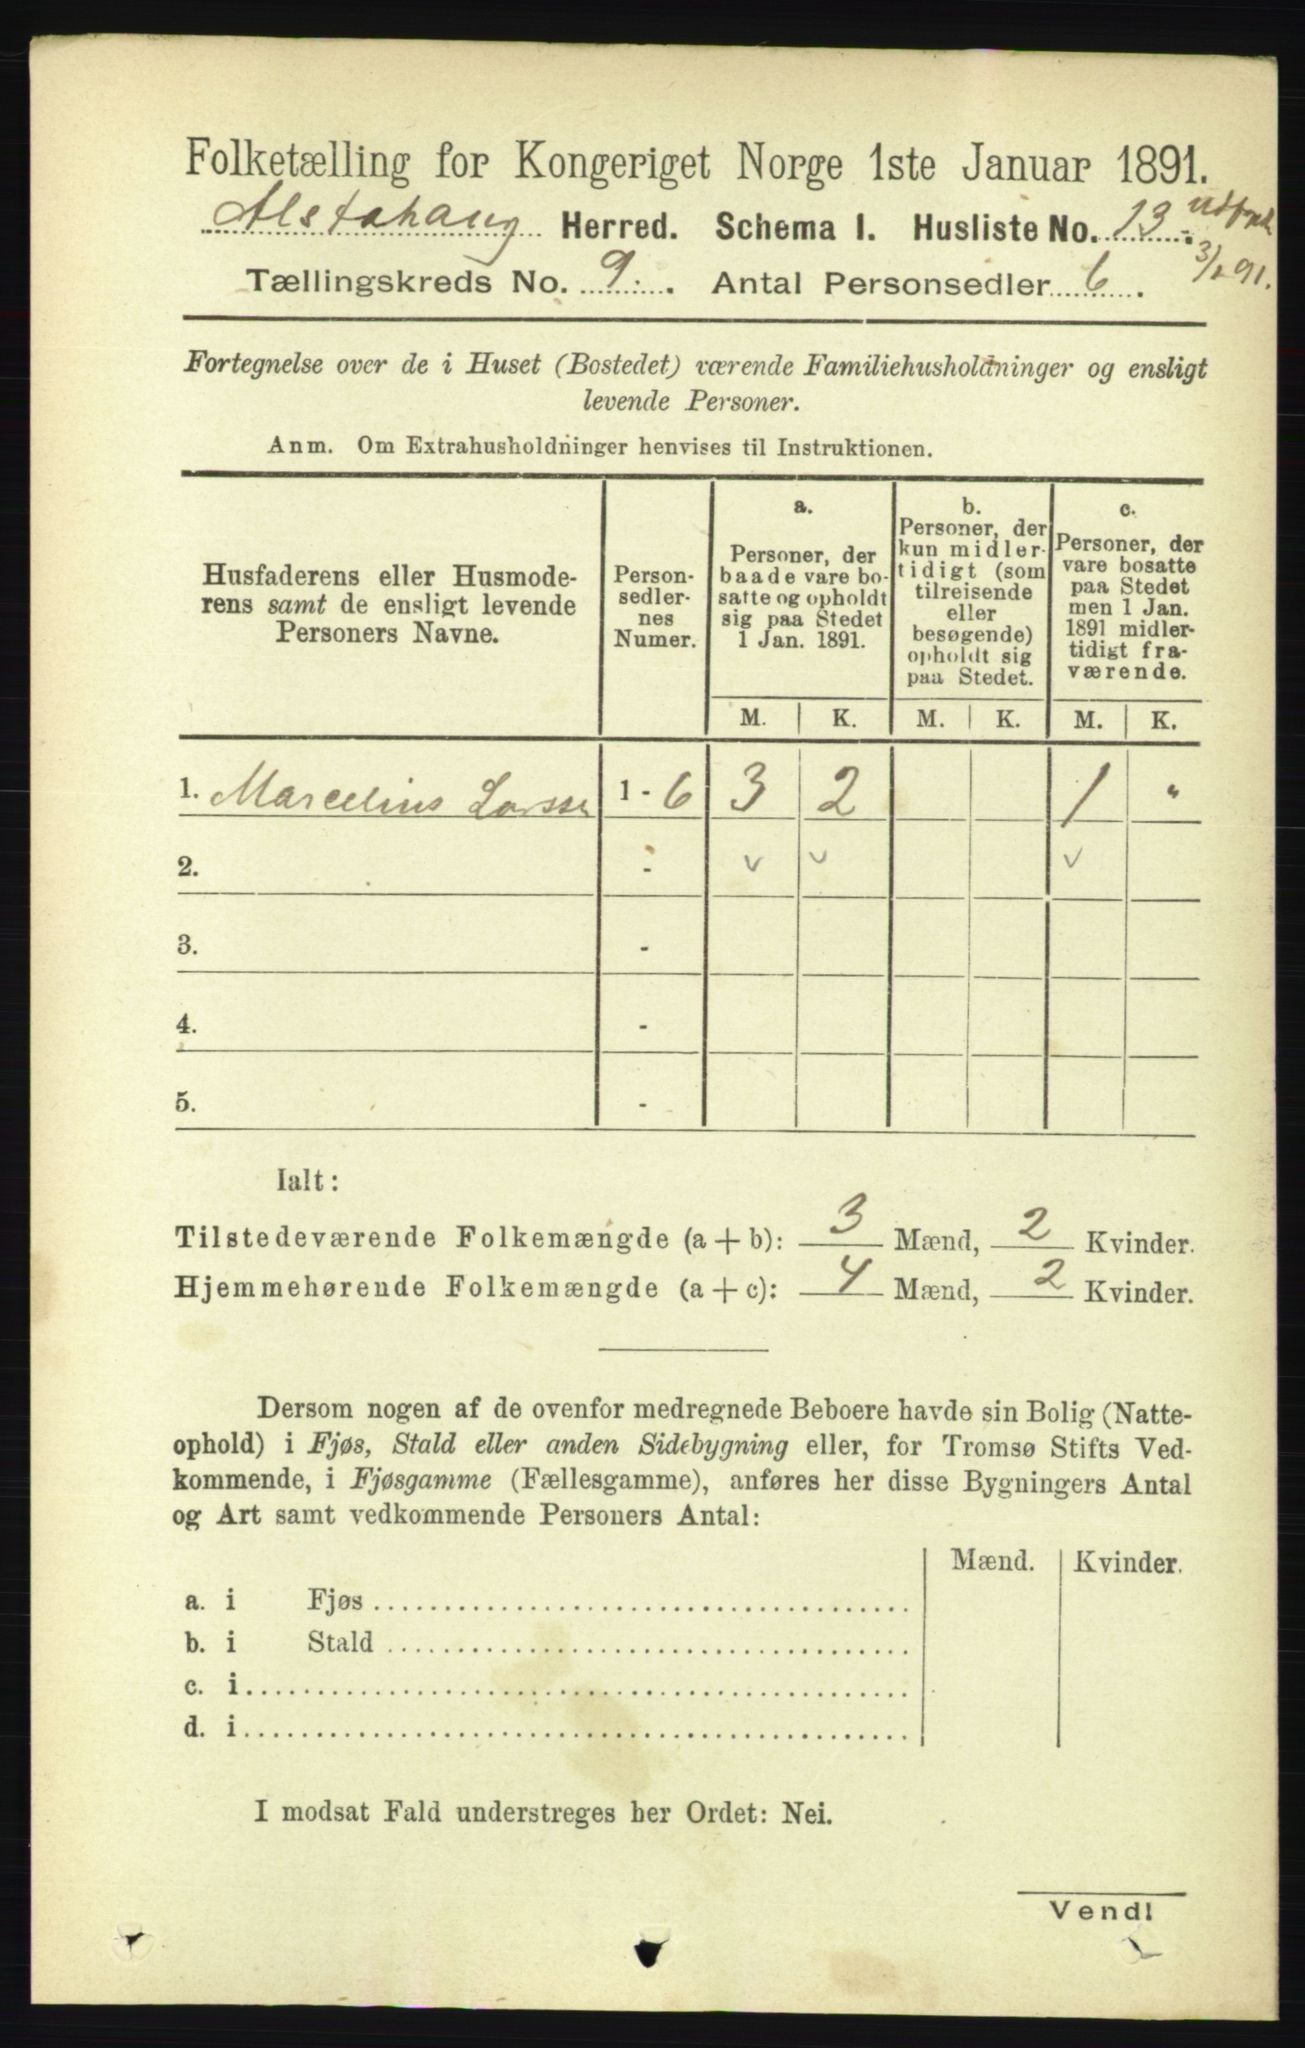 Folketælling for Kongeriget Norge 1ste Januar 1891.
Alstahaug Herred. Schema I. Husliste No. 13.
3/1 91.
Tællingskreds No. 9. Antal Personsedler 6.
Fortegnelse over de i Huset (Bostedet) værende Familiehusholdninger og ensligt
levende Personer.
Anm. Om Extrahusholdninger henvises til Instruktionen.
Husfaderens eller Husmode-
rens samt de ensligt levende
Personers Navne.
Person-
sedler-
nes
Numer.
a.
Personer, der
baade vare bo-
satte og opholdt
sig paa Stedet
1 Jan. 1891.
b.
Personer, der
kun midler-
tidigt (som
tilreisende
eller
besøgende)
opholdt sig
paa Stedet.
c.
Personer, der
vare bosatte
paa Stedet
men 1 Jan.
1891 midler-
tidigt fra-
værende.
M. K. M. K. M. K.
1. Marcelius Larssen 1 - 6 3 2 1 "
2. - v v v
3. -
4. -
5. -
Ialt:
Tilstedeværende Folkemængde (a + b): 3 Mænd, 2 Kvinder.
Hjemmehørende Folkemængde (a + c): 4 Mænd, 2 Kvinder.
Dersom nogen af de ovenfor medregnede Beboere havde sin Bolig (Natte-
ophold) i Fjøs, Stald eller anden Sidebygning eller, for Tromsø Stifts Ved-
kommende, i Fjøsgamme (Fællesgamme), anføres her disse Bygningers Antal
og Art samt vedkommende Personers Antal:
Mænd. Kvinder.
a. i Fjøs
b. i Stald
c. i
d. i
I modsat Fald understreges her Ordet: Nei.
Vend!